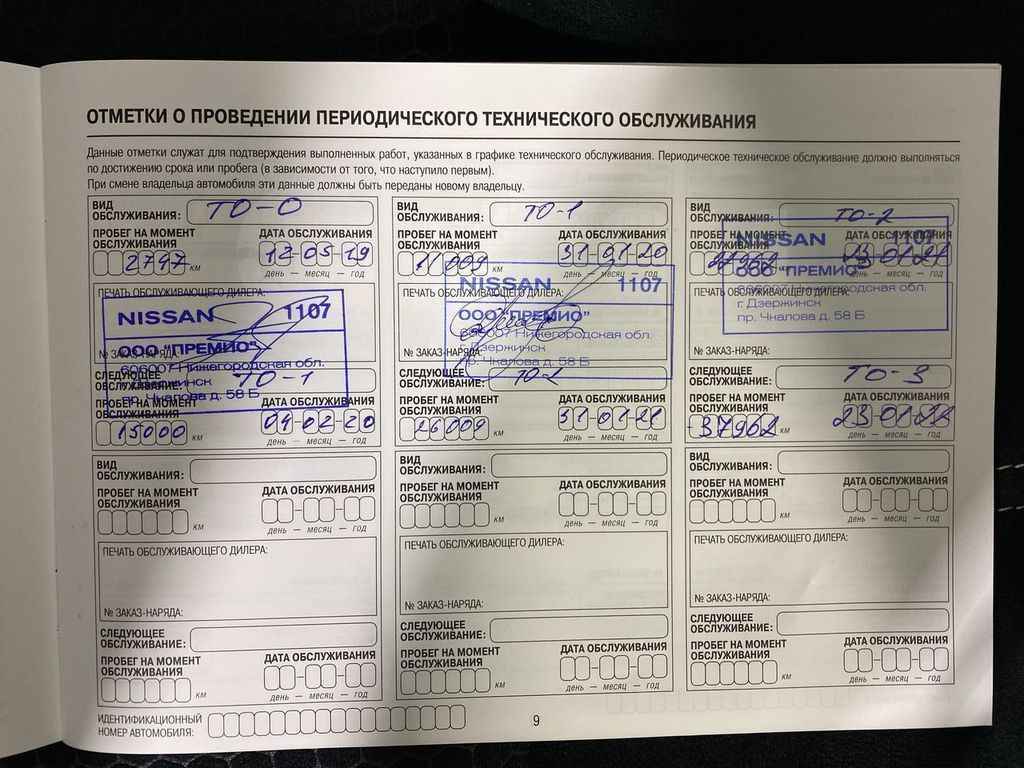 ОТМЕТКИ О ПРОВЕДЕНИИ ПЕРИОДИЧЕСКОГО ТЕХНИЧЕСКОГО ОБСЛУЖИВАНИЯ
Данные отметки служат для подтверждения выполненных работ, указанных в графике технического обслуживания. Периодическое техническое обслуживание должно выполняться
по достижению срока или пробега (в зависимости от того, что наступило первым).
При смене владельца автомобиля эти данные должны быть переданы новому владельцу.
ВИД
ОБСЛУЖИВАНИЯ: ТО-0
ПРОБЕГ НА МОМЕНТ
ОБСЛУЖИВАНИЯ
ДАТА ОБСЛУЖИВАНИЯ
2747 км
12-05-19
день — месяц — год
ПЕЧАТЬ ОБСЛУЖИВАЮЩЕГО ДИЛЕРА:
NISSAN 1107
ООО "ПРЕМИО"
606007 Нижегородская обл.
г. Дзержинск
пр. Чкалова д. 58 Б
№ ЗАКАЗ-НАРЯДА:
СЛЕДУЮЩЕЕ
ОБСЛУЖИВАНИЕ: ТО-1
ПРОБЕГ НА МОМЕНТ
ОБСЛУЖИВАНИЯ
ДАТА ОБСЛУЖИВАНИЯ
15000 км
04-02-20
день — месяц — год
ВИД
ОБСЛУЖИВАНИЯ: ТО-1
ПРОБЕГ НА МОМЕНТ
ОБСЛУЖИВАНИЯ
ДАТА ОБСЛУЖИВАНИЯ
11009 км
31-01-20
день — месяц — год
ПЕЧАТЬ ОБСЛУЖИВАЮЩЕГО ДИЛЕРА:
NISSAN 1107
ООО "ПРЕМИО"
606007 Нижегородская обл.
г. Дзержинск
пр. Чкалова д. 58 Б
№ ЗАКАЗ-НАРЯДА:
СЛЕДУЮЩЕЕ
ОБСЛУЖИВАНИЕ: ТО-2
ПРОБЕГ НА МОМЕНТ
ОБСЛУЖИВАНИЯ
ДАТА ОБСЛУЖИВАНИЯ
26009 км
31-01-21
день — месяц — год
ВИД
ОБСЛУЖИВАНИЯ: ТО-2
ПРОБЕГ НА МОМЕНТ
ОБСЛУЖИВАНИЯ
ДАТА ОБСЛУЖИВАНИЯ
NISSAN 1107
ООО "ПРЕМИО"
606007 Нижегородская обл.
г. Дзержинск
пр. Чкалова д. 58 Б
ПЕЧАТЬ ОБСЛУЖИВАЮЩЕГО ДИЛЕРА:
№ ЗАКАЗ-НАРЯДА:
СЛЕДУЮЩЕЕ
ОБСЛУЖИВАНИЕ: ТО-3
ПРОБЕГ НА МОМЕНТ
ОБСЛУЖИВАНИЯ
ДАТА ОБСЛУЖИВАНИЯ
37962 км
день — месяц — год
ВИД
ОБСЛУЖИВАНИЯ:
ПРОБЕГ НА МОМЕНТ
ОБСЛУЖИВАНИЯ
ДАТА ОБСЛУЖИВАНИЯ
км
день — месяц — год
ПЕЧАТЬ ОБСЛУЖИВАЮЩЕГО ДИЛЕРА:
№ ЗАКАЗ-НАРЯДА:
СЛЕДУЮЩЕЕ
ОБСЛУЖИВАНИЕ:
ПРОБЕГ НА МОМЕНТ
ОБСЛУЖИВАНИЯ
ДАТА ОБСЛУЖИВАНИЯ
км
день — месяц — год
ВИД
ОБСЛУЖИВАНИЯ:
ПРОБЕГ НА МОМЕНТ
ОБСЛУЖИВАНИЯ
ДАТА ОБСЛУЖИВАНИЯ
км
день — месяц — год
ПЕЧАТЬ ОБСЛУЖИВАЮЩЕГО ДИЛЕРА:
№ ЗАКАЗ-НАРЯДА:
СЛЕДУЮЩЕЕ
ОБСЛУЖИВАНИЕ:
ПРОБЕГ НА МОМЕНТ
ОБСЛУЖИВАНИЯ
ДАТА ОБСЛУЖИВАНИЯ
км
день — месяц — год
ВИД
ОБСЛУЖИВАНИЯ:
ПРОБЕГ НА МОМЕНТ
ОБСЛУЖИВАНИЯ
ДАТА ОБСЛУЖИВАНИЯ
км
день — месяц — год
ПЕЧАТЬ ОБСЛУЖИВАЮЩЕГО ДИЛЕРА:
№ ЗАКАЗ-НАРЯДА:
СЛЕДУЮЩЕЕ
ОБСЛУЖИВАНИЕ:
ПРОБЕГ НА МОМЕНТ
ОБСЛУЖИВАНИЯ
ДАТА ОБСЛУЖИВАНИЯ
км
день — месяц — год
ИДЕНТИФИКАЦИОННЫЙ
НОМЕР АВТОМОБИЛЯ:
9